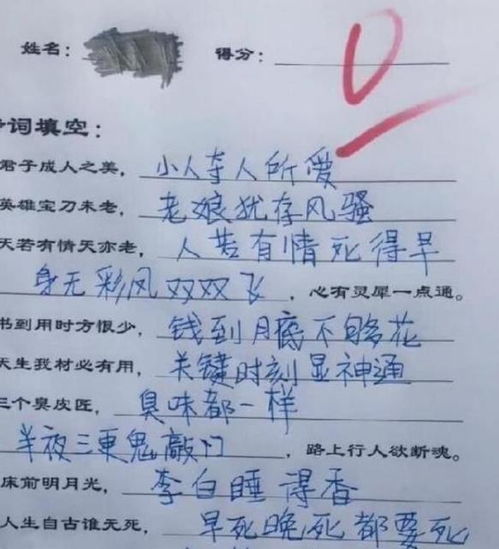 姓名: 得分: 0
词填空:
君子成人之美, 小人夺人所爱
英雄宝刀未老, 老娘犹存风骚
天若有情天亦老, 人若有情死得早
身无彩凤双双飞, 心有灵犀一点通。
书到用时方恨少, 钱到月底不够花
天生我材必有用, 关键时刻显神通
三个臭皮匠, 臭味都一样
半夜三更鬼敲门, 路上行人欲断魂。
床前明月光, 李白睡得香
人生自古谁无死, 早死晚死都要死